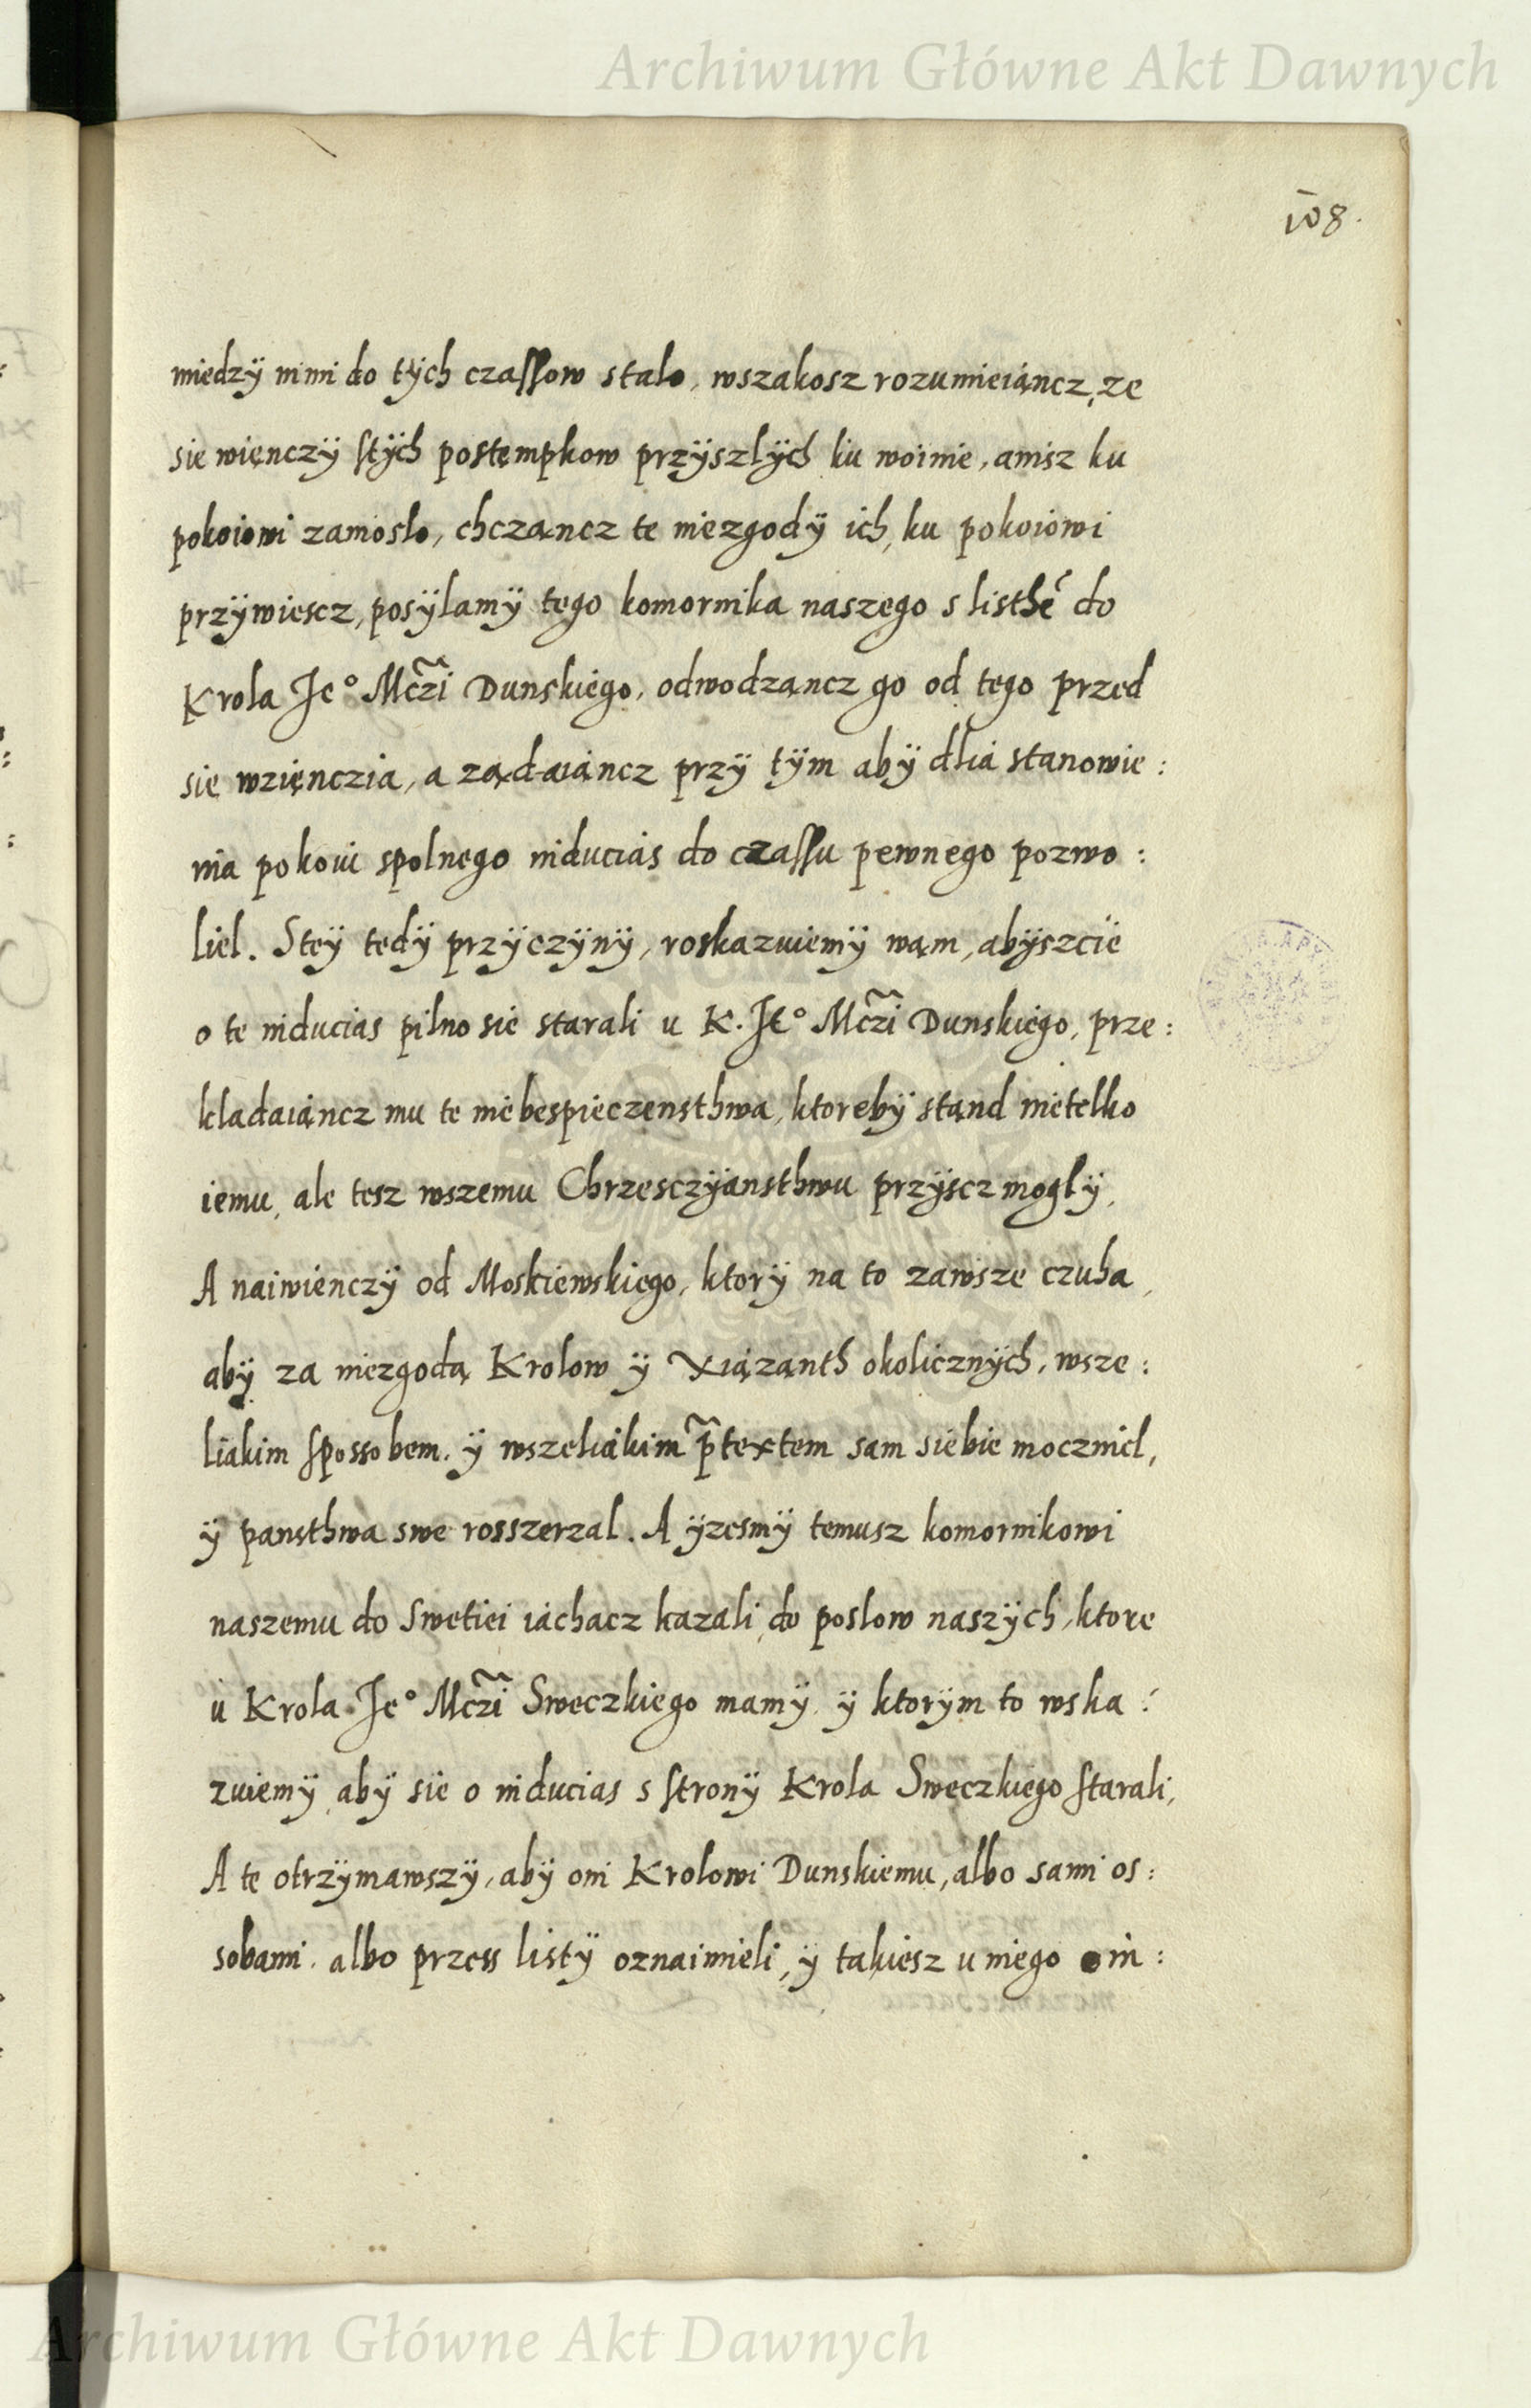 Archiwum Główne Akt Dawnych
108.
miedzÿ nimi do tÿch czassow stalo, wszakosz rozumieiąncz, ze
sie więnczÿ stÿch postempkow przÿszlÿch ku woinie, anisz ku
pokoiowi zanioslo, chcząncz te niezgodÿ ich, ku pokoiowi
przÿwiescz, posÿlamÿ tego komornika naszego s listhē do
Krola Jeº Mczi Dunskiego, odwodząncz go od tego przed
sie wzięnczia, a ządaiąncz przÿ tÿm abÿ dlia stanowie:
nia pokoiu spolnego inducias do czassu pewnego pozwo:
liel. Steÿ tedÿ przÿczÿnÿ, roskazuiemÿ wąm, abÿszcie
o te inducias pilno sie starali u K. Jeº Mczi Dunskiego, prze:
kladaiąncz mu te niebespieczensthwa, ktorebÿ stąnd nietelko
iemu, ale tesz wszemu Chrzesczÿansthwu przÿscz moglÿ,
A naiwienczÿ od Moskiewskiego, ktorÿ na to zawsze czuha,
abÿ za niezgodą Krolow ÿ Xiązanth okolicznÿch, wsze:
liakim sposobem, ÿ wszeliakim p̃textem sam siebie mocznil,
ÿ pansthwa swe rosszerzal. A ÿzesmÿ temusz komornikowi
naszemu do Swetiei iachacz kazali, do poslow naszÿch, ktore
u Krola Jeº Mczi Sweczkiego mamÿ, ÿ ktorÿm to wska:
zuiemÿ, abÿ sie o inducias s stronÿ Krola Sweczkiego starali,
A te otrzÿmawszÿ, abÿ oni Krolowi Dunskiemu, albo sami os:
sobami, albo przess listÿ oznaimieli, ÿ takiesz u niego o in:
Archiwum Główne Akt Dawnych